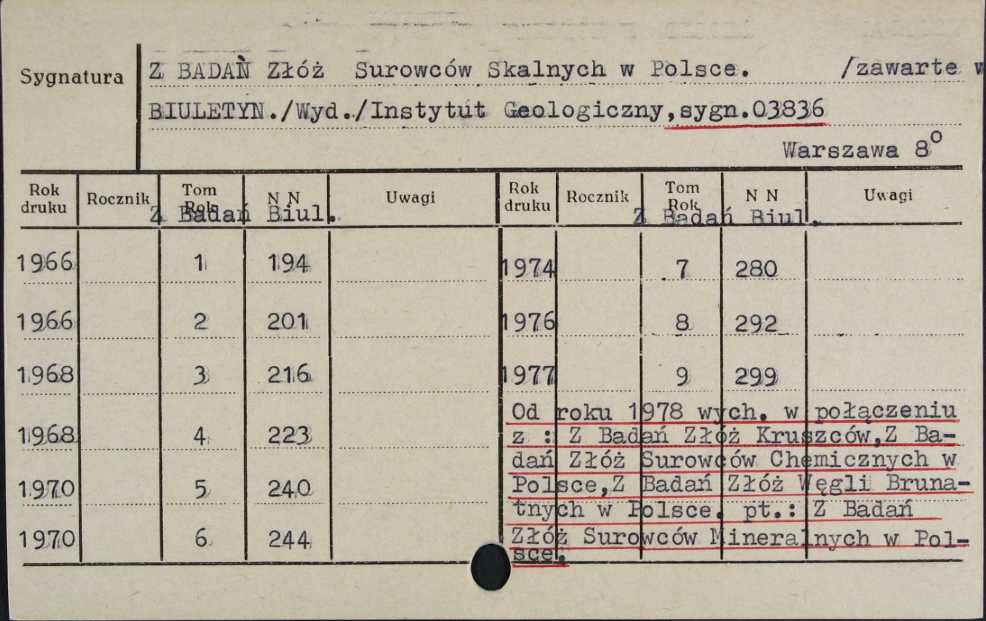 Sygnatura
Z BADAŃ Złóż Surowców Skalnych w Polsce. /zawarte w
BIULETYN./Wyd./Instytut Geologiczny,sygn.03836
Warszawa 8°
Rok druku Rocznik Tom Rok N N Uwagi Rok druku Rocznik Tom Rok N N Uwagi
Z Badań Biul. Z Badań Biul.
1966 1 194 1974 7 280
1966 2 201 1976 8 292
1968 3 216 1977 9 299
Od roku 1978 wych. w połączeniu
1968 4 223 z : Z Badań Złóż Kruszców,Z Ba-
dań Złóż Surowców Chemicznych w
1970 5 240 Polsce,Z Badań Złóż Węgli Bruna-
tnych w Polsce. pt.: Z Badań
1970 6 244 Złóż Surowców Mineralnych w Pol-
sce.